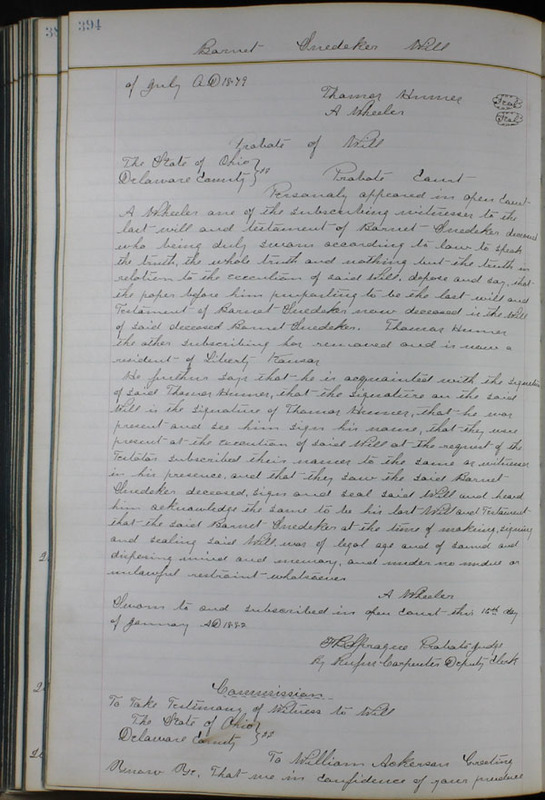 394
Barnet Snedeker Will
of July AD 1879
Thomas Humes Seal
A Wheeler Seal
Probate of Will
The State of Ohio } ss
Delaware County } Probate Court
Personaly appeared in open Court
A Wheeler one of the subscribing witnesses to the
last will and testament of Barnet Snedeker deceased
who being duly sworn according to law to speak
the truth, the whole truth and nothing but the truth in
relation to the execution of said Will, depose and say, that
the paper before him purporting to be the last will and
Testament of Barnet Snedeker now deceased is the Will
of said deceased Barnet Snedeker. Thomas Humes
the other subscribing has removed and is now a
resident of Liberty Kansas
He further says that he is acquainted with the signature
of said Thomas Humes, that the signature on the said
Will is the signature of Thomas Humes, that he was
present and see him sign his name, that they were
present at the execution of said Will at the request of the
Testator subscribed their names to the same as witnesses
in his presence, and that they saw the said Barnet
Snedeker deceased, sign and seal said Will and heard
him acknowledge the same to be his last Will and Testament
that the said Barnet Snedeker at the time of making, signing
and sealing said Will, was of legal age and of sound and
disposing mind and memory, and under no undue or
unlawful restraint whatsoever
A Wheeler
Sworn to and subscribed in open court this 16th day
of January AD 1882
Sprague Probate Judge
By Rufus Carpenter Deputy Clerk
Commission
To Take Testimony of Witness to Will
The State of Ohio }
Delaware County } ss
To William Ackerson Greeting
Know Ye, That we in confidence of your prudence